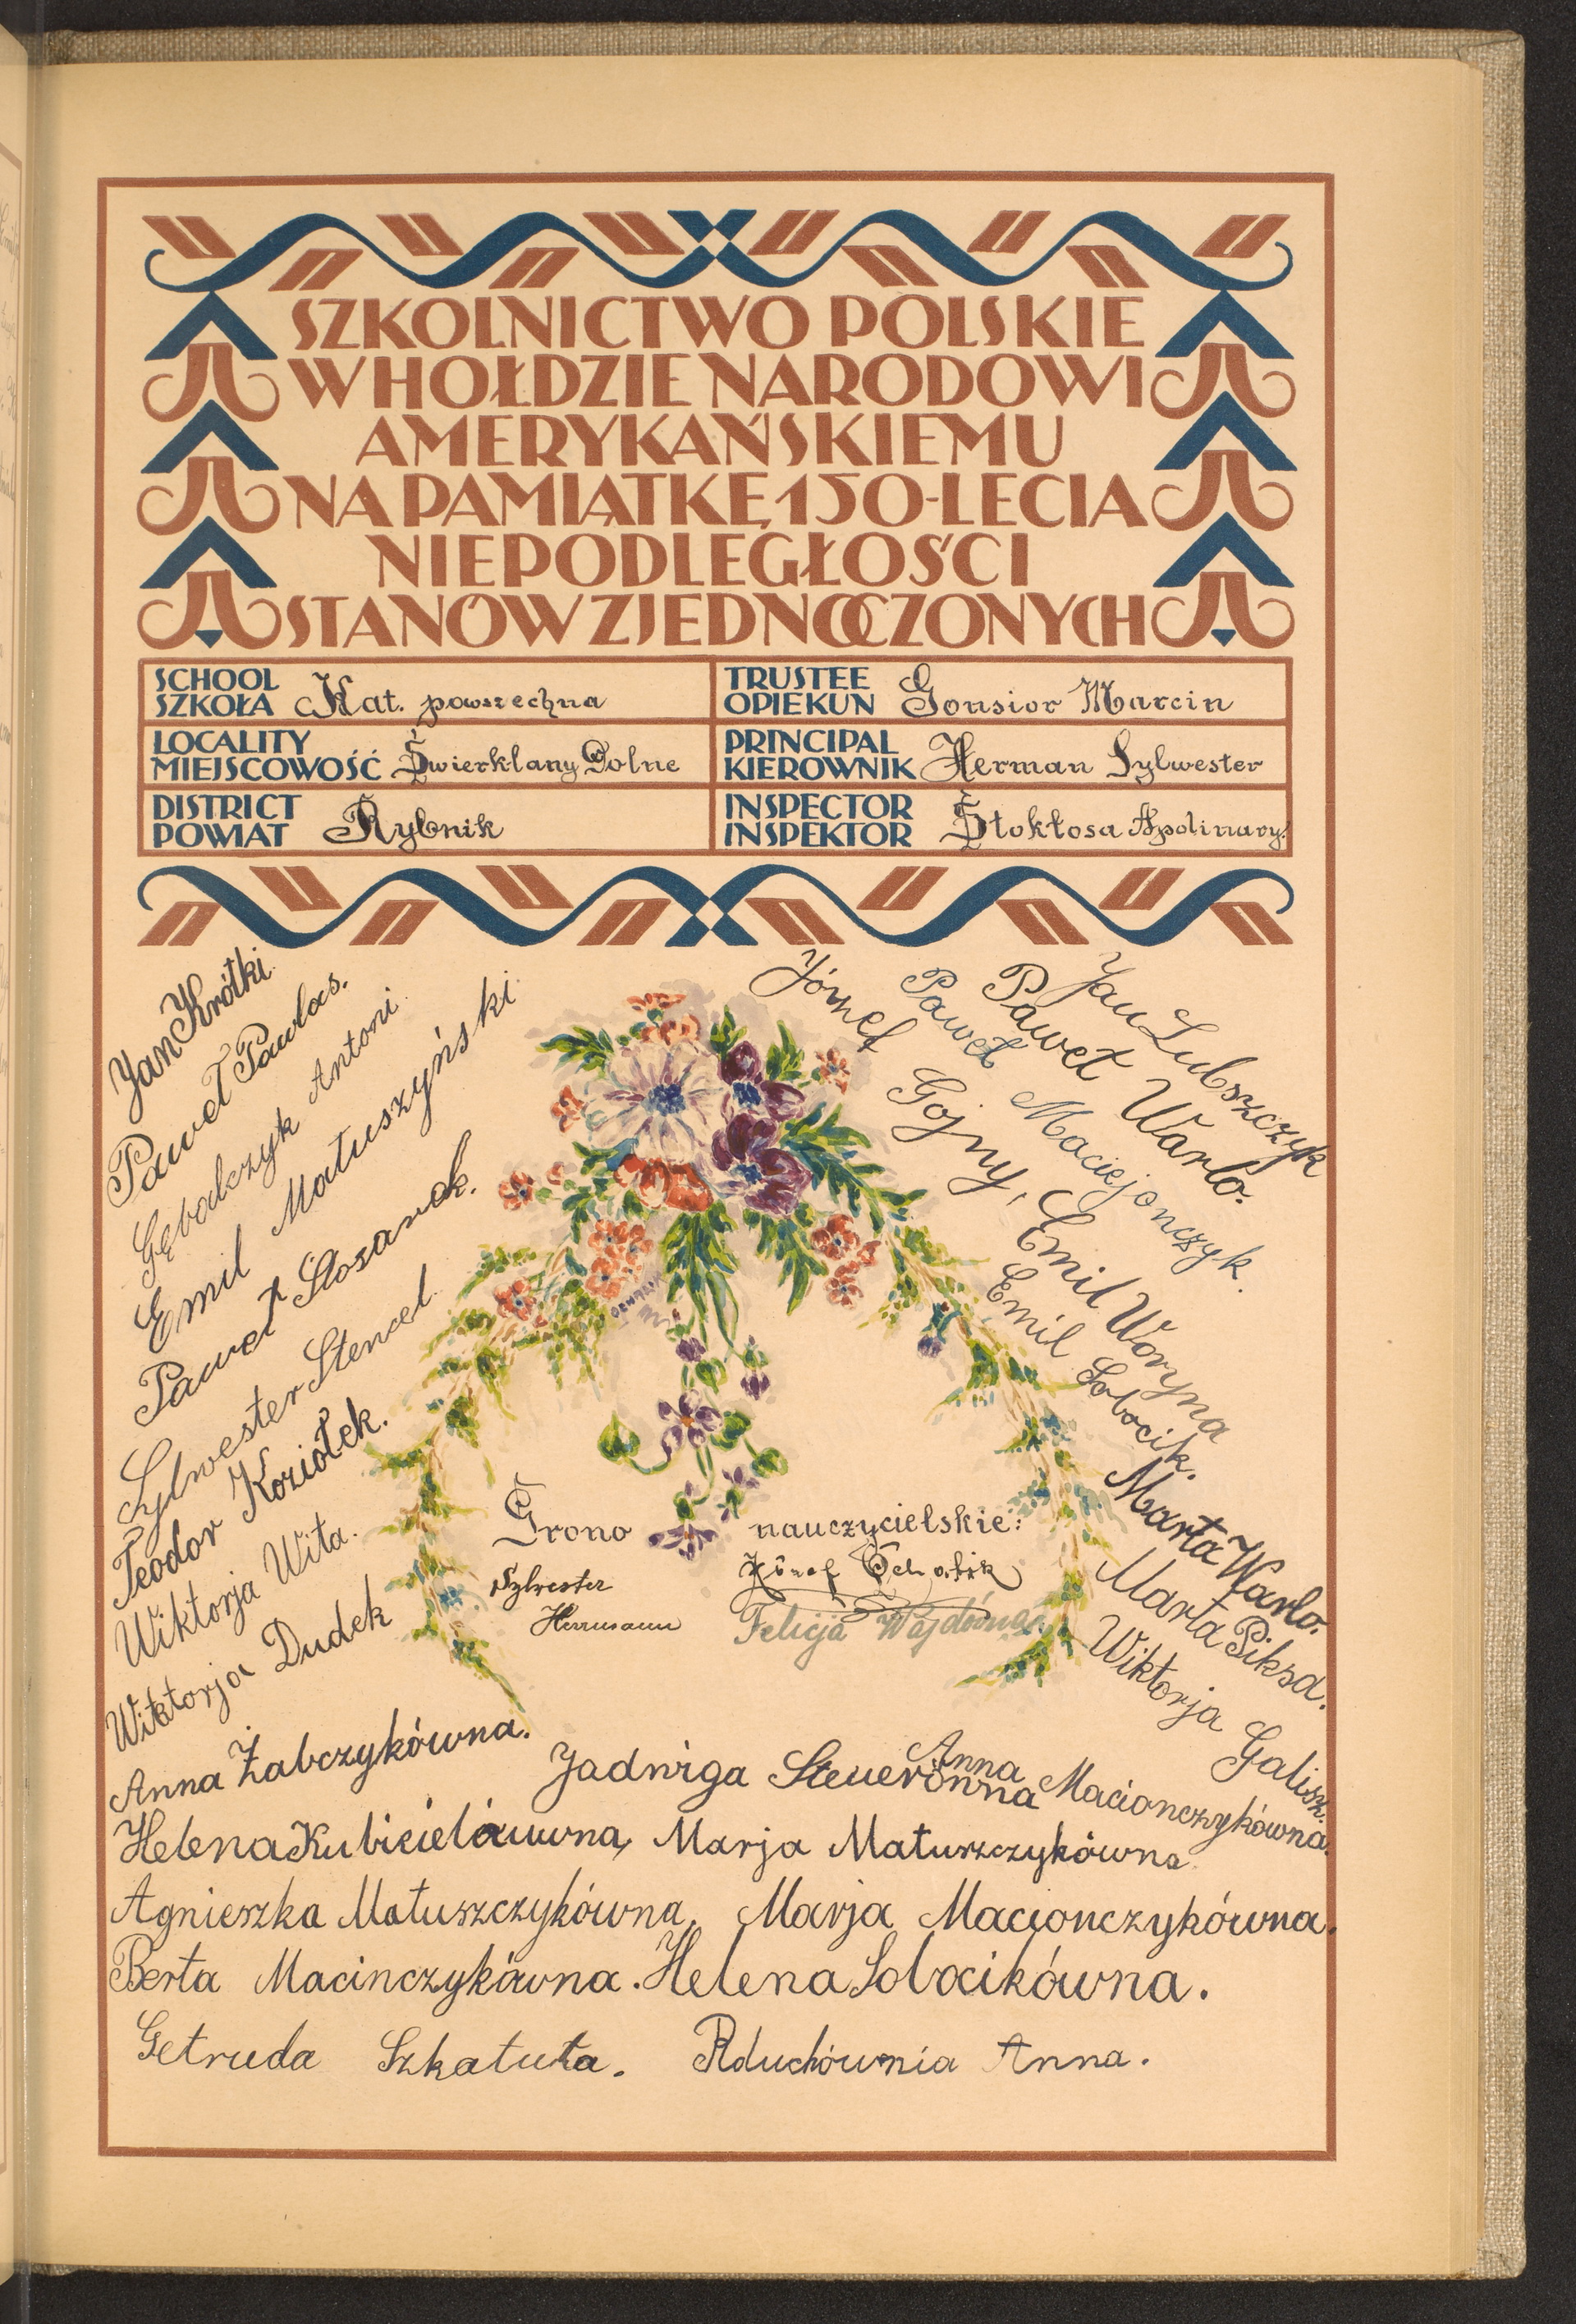 SZKOLNICTWO POLSKIE
W HOŁDZIE NARODOWI
AMERYKAŃSKIEMU
NA PAMIĄTKĘ 150-LECIA
NIEPODLEGŁOŚCI
STANÓW ZJEDNOCZONYCH
SCHOOL
SZKOŁA Kat. powszechna
TRUSTEE
OPIEKUN Gonsior Marcin
LOCALITY
MIEJSCOWOŚĆ Świerklany Dolne
PRINCIPAL
KIEROWNIK Herman Sylwester
DISTRICT
POWIAT Rybnik
INSPECTOR
INSPEKTOR Stokłosa Apolinary.
Jan Krótki.
Paweł Pawlas.
Gębalczyk Antoni.
Emil Matuszyński.
Paweł Ślosarek.
Sylwester Stencel.
Teodor Koziołek.
Wiktorja Wita.
Wiktorja Dudek
Anna Żabczykówna.
Jan Lubszczyk
Paweł Warło.
Paweł Maciejonczyk.
Józef Gojny,
Emil Woryna
Emil Sobocik.
Marta Warło.
Marta Piksa.
Wiktorja Galisz.
Anna Macionczykówna.
Grono nauczycielskie:
Sylwester Herrmann
Józef
Felicja Wajdówna
Jadwiga Steuerówna
Helena Kubicielówna, Marja Matuszczykówna.
Agnieszka Matuszczykówna, Marja Macionczykówna.
Berta Macinczykówna. Helena Sobocikówna.
Getruda Szkatuła. Rduchównia Anna.